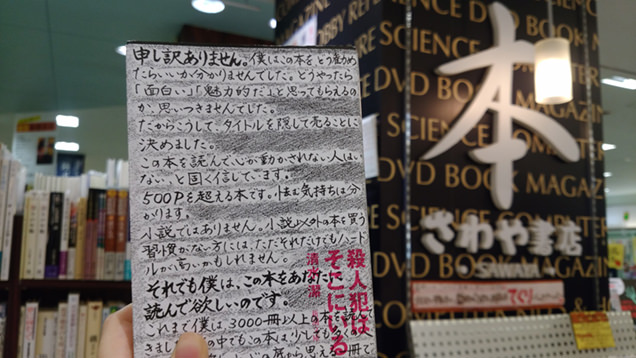 申し訳ありません。僕はこの本をどう勧め
たらいいか分かりませんでした。どうやったら
「面白い」「魅力的だ」と思ってもらえるの
か、思いつきませんでした。
だからこうして、タイトルを隠して売ることに
決めました。
この本を読んで心が動かされない人はい
ない、と固く信じています。
500Pを超える本です。怯む気持ちは分
かります。
小説ではありません。小説以外の本を買う
習慣がない方には、ただそれだけでもハード
ルが高いかもしれません。
それでも僕は、この本をあなたに
読んで欲しいのです。
これまで僕は3000冊以上の本を読んで
殺人犯は
そこにいる
清水潔
本
さわや書店
SAWAYA
HOBBY REFERENCE
SCIENCE COMPUTER
DVD BOOK MAGAZINE